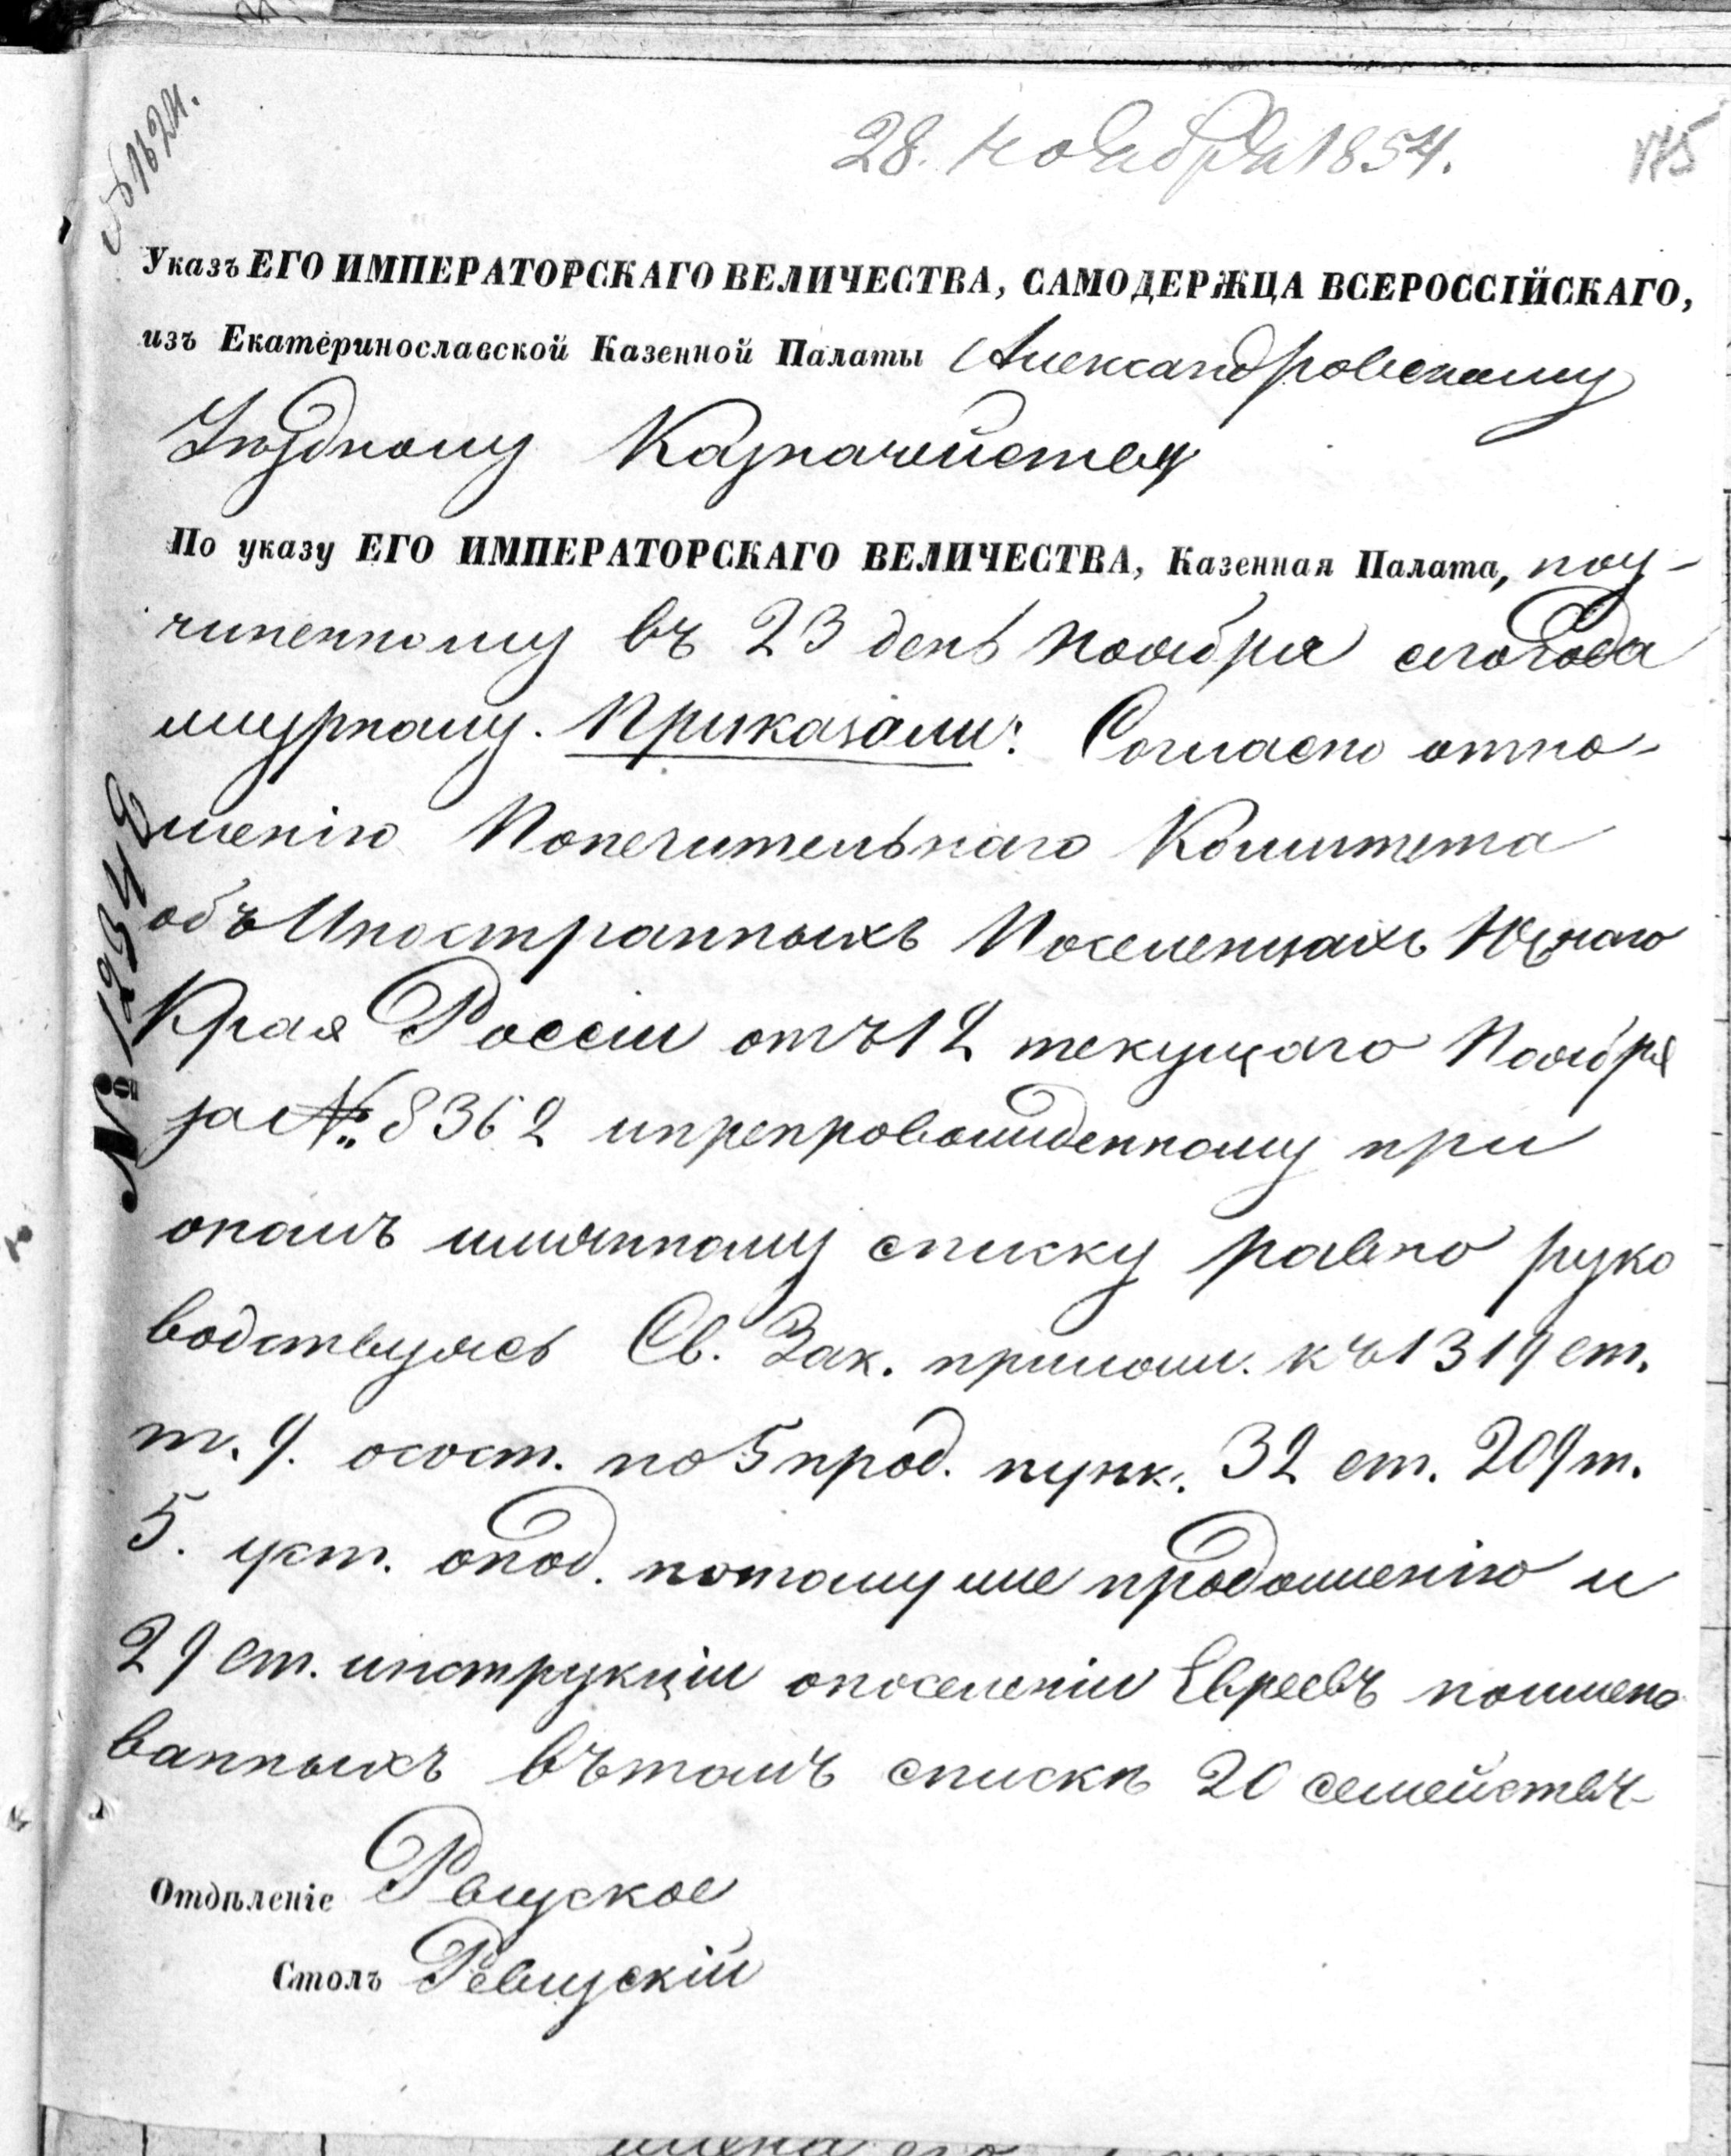 № 1624.
28. ноября 1854.
175
Указъ ЕГО ИМПЕРАТОРСКАГО ВЕЛИЧЕСТВА, САМОДЕРЖЦА ВСЕРОССІЙСКАГО,
изъ Екатеринославской Казенной Палаты Александровскому
Уѣздному Казначейству
По указу ЕГО ИМПЕРАТОРСКАГО ВЕЛИЧЕСТВА, Казенная Палата, по у-
чиненному въ 23 день Ноября сего года
журналу. Приказали: Согласно отно-
шенію Попечительнаго Комитета
объ Иностранныхъ Поселенцахъ Южнаго
Края Россіи отъ 12 текущаго Ноября
за № 8362 и препровожденному при
ономъ имянному списку равно руко
водствуясь Св. Зак. прилож. къ 1319 ст.
т. 9. о сост. по 5 прод. пунк. 32 ст. 209 т.
5. уст. о под. по тому же продолженію и
29 ст. инструкціи о поселеніи Евреевъ поимено
ванныхъ въ томъ спискѣ 20 семействъ
Отдѣленіе Ревизское
Столъ Ревизскій
№ 12348